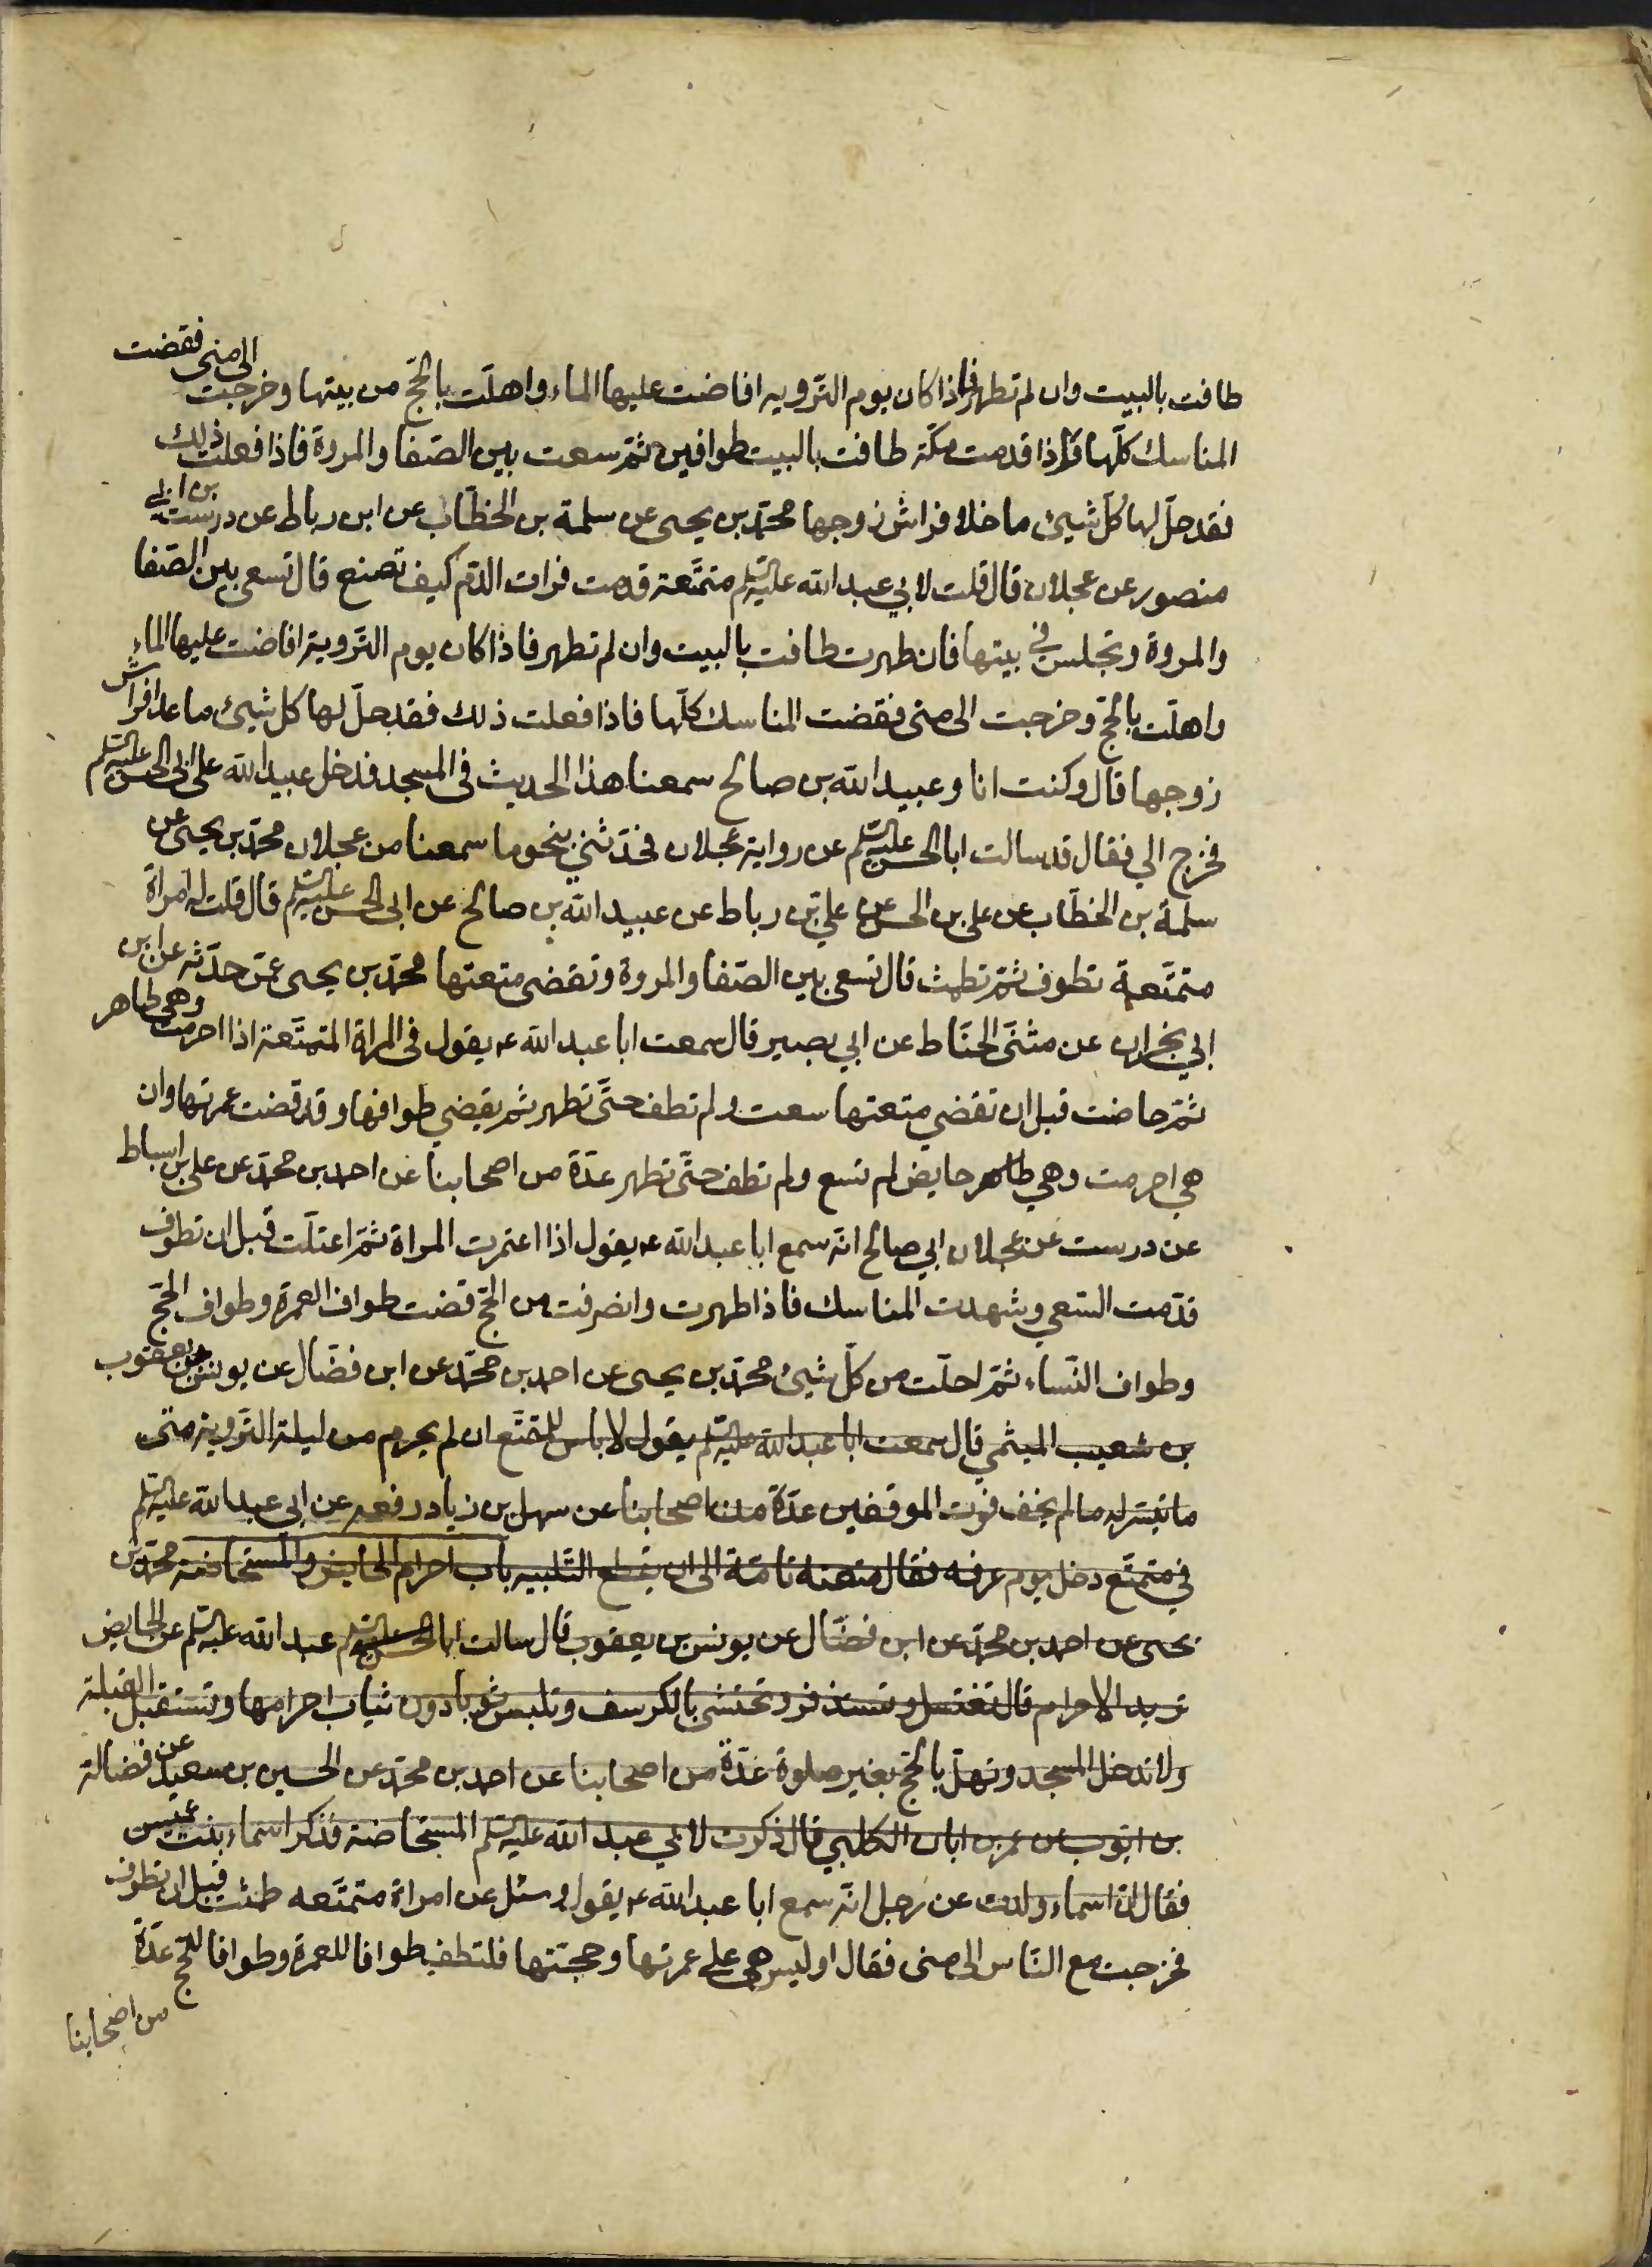 طافت بالبيت وان لم تطهر فاذا كان يوم التّرويه افاضت عليها الماء واهلّت بالحجّ من بيتها وخرجت الى منى فقضت
المناسك كلّها فاذا قدمت مكّة طافت بالبيت طوافين ثمّ سعت بين الصّفا والمروة فاذا فعلت ذلك
فقد حلّ لها كلّ شيئ ما خلا فراش زوجها محمّد بن يحيى عن سلمة بن الخطّاب عن ابن رباط عن درست بن ابي
منصور عن عجلان قال قلت لابي عبد الله عليه السّلم متمتّعة قدمت فرات الدّم كيف تصنع قال تسعى بين الصّفا
والمروة وتجلس في بيتها فان طهرت طافت بالبيت وان لم تطهر فاذا كان يوم التّروية افاضت عليها الماء
واهلّت بالحجّ وخرجت الى منى فقضت المناسك كلّها فاذا فعلت ذلك فقد حلّ لها كل شيئ ما عدا فراش
زوجها قال وكنت انا وعبيد الله بن صالح سمعنا هذا الحديث فى المسجد فدخل عبيد الله على ابى الحسن عليه السّلم
فخرج الي فقال قد سالت ابا الحسن عليه السّلم عن رواية عجلان فحدّثني بنحو ما سمعنا من عجلان محمّد بن يحيى عن
سلمة بن الخطّاب عن على بن الحسن عن علي بن رباط عن عبيد الله بن صالح عن ابى الحسن عليه السّلم قال قلت له امراة
متمتّعة تطوف ثمّ تطمث قال تسعى بين الصّفا والمروة وتقضى متعتها محمّد بن يحيى عمّن حدّثه عن ابن
ابي نجران عن مثنّى الحنّاط عن ابي بصير قال سمعت ابا عبد الله ع يقول فى المراة المتمتّعة اذا احرمت وهي طاهر
ثمّ حاضت قبل ان تقضي متعتها سعت ولم تطف حتّى تطهر ثم يقضي طوافها وقد قضت عمرتها وان
هي احرمت وهي حايض لم تسع ولم تطف حتّى تطهر عدّة من اصحابنا عن احمد بن محمّد عن علي بن اسباط
عن درست عن عجلان ابي صالح انّه سمع ابا عبد الله ع يقول اذا اعتمرت المراة ثمّ اعتلّت قبل ان تطوف
قدّمت السّعي وشهدت المناسك فاذا طهرت وانصرفت من الحجّ قضت طواف العمرة وطواف الحجّ
وطواف النّساء ثمّ احلّت من كلّ شيئ محمّد بن يحيى عن احمد بن محمّد عن ابن فضّال عن يونس بن يعقوب
بن شعيب الميثمي قال سمعت ابا عبد الله عليه السّلم يقول لا باس للمتمتّع ان لم يحرم من ليلة التّروية متى
ما تيسّر له ما لم يخف فوت الموقفين عدّة من اصحابنا عن سهل بن زياد رفعه عن ابى عبد الله عليه السّلم
في متمتّع دخل يوم عرفه فقال متعته تامّة الى ان يقطع التّلبيه باب احرام الحايض والمستحاضه محمّد بن
يحيى عن احمد بن محمّد عن ابن فضّال عن يونس بن يعقوب قال سالت ابا الحسن عليه السّلم عبد الله عليه السّلم عن الحايض
تريد الاحرام قال تغتسل وتستذفر وتحتشى بالكرسف وتلبس ثوبا دون ثياب احرامها وتستقبل القبلة
ولا تدخل المسجد وتهلّ بالحجّ بغير صلوة عدّة من اصحابنا عن احمد بن محمّد عن الحسين بن سعيد عن فضالة
بن ايّوب عن عمر بن ابان الكلبي قال ذكرت لابي عبد الله عليه السّلم المستحاضة فذكر اسماء بنت عميس
فقال انّ اسماء ولدت عن رجل انّه سمع ابا عبد الله ع يقول وسئل عن امراة متمتّعه طمثت قبل ان تطوف
فخرجت مع النّاس الى منى فقال اوليس هي على عمرتها وحجّتها فلتطف طوافا للعمرة وطوافا للحجّ عدّة
من اصحابنا